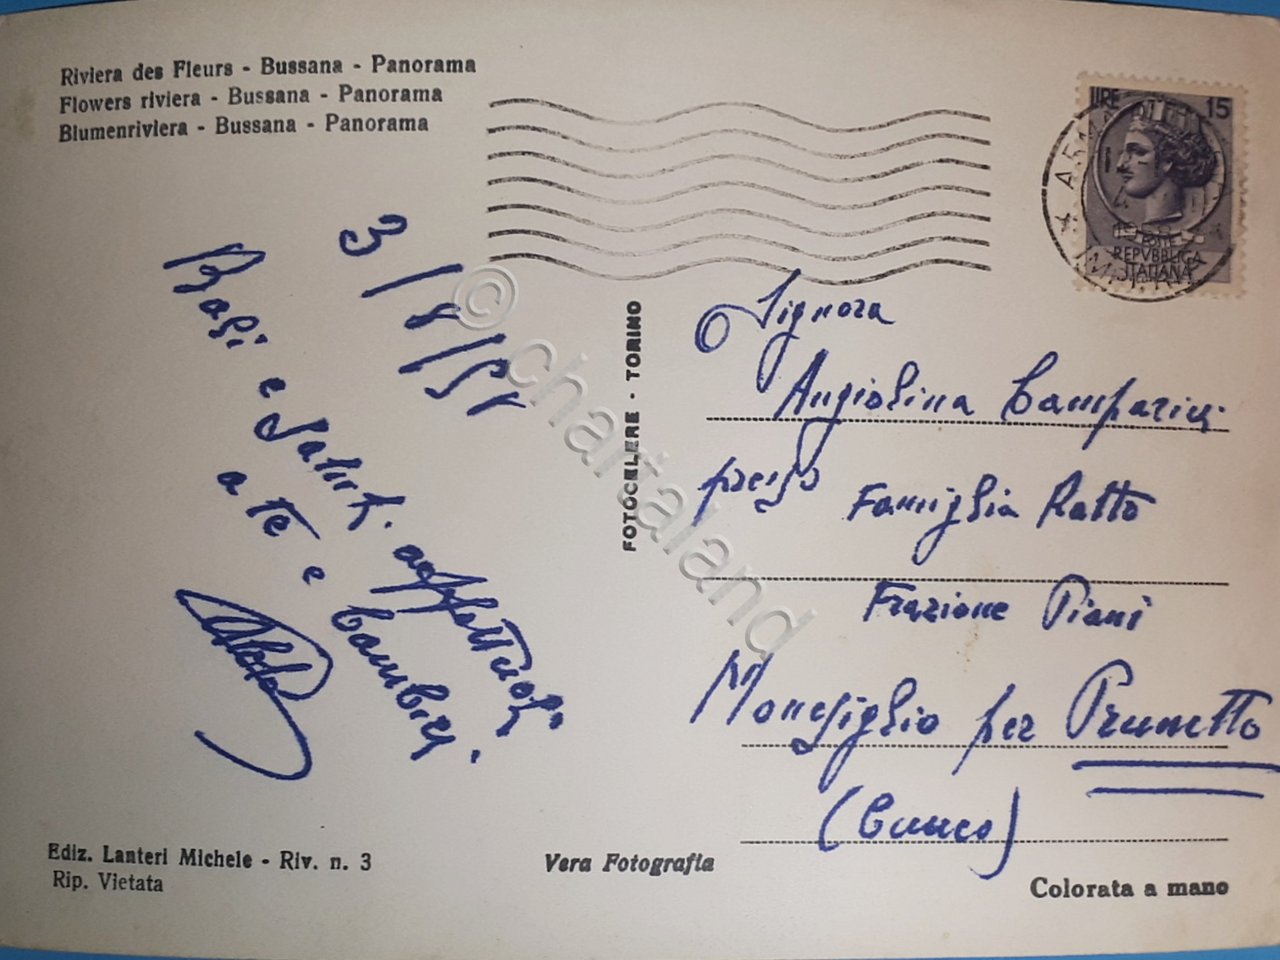 Riviera des Fleurs - Bussana - Panorama
Flowers riviera - Bussana - Panorama
Blumenriviera - Bussana - Panorama
LIRE 15
POSTE
REPVBBLICA
ITALIANA
3/8/58
Baci e saluti affettuosi
a te e bambini.
FOTOCELERE - TORINO
© chartaland
Signora
Angiolina
presso Famiglia Ratto
Frazione Piani
Monesiglio per Prunetto
(Cuneo)
Ediz. Lanteri Michele - Riv. n. 3
Rip. Vietata
Vera Fotografia
Colorata a mano